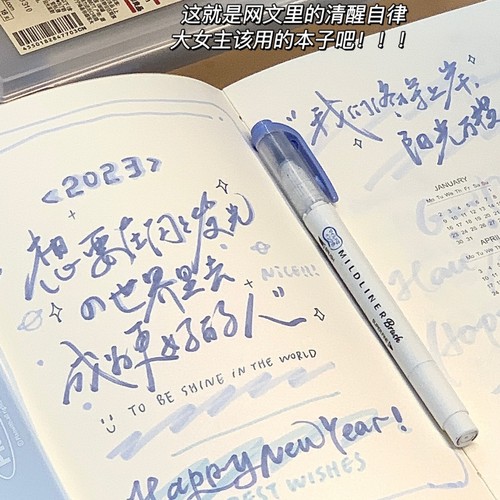 这就是网文里的清醒自律
大女主该用的本子吧！！！
4550182847703CN
<2023>
想要在闪闪发光
の世界里去
NICE!!!
成为更好的人”
TO BE SHINE IN THE WORLD
Happy New Year!
BEST WISHES
“我们终将上岸，
阳光万里
MILDLINER Brush
JANUARY
Mo Tu We Th Fr Sa Su